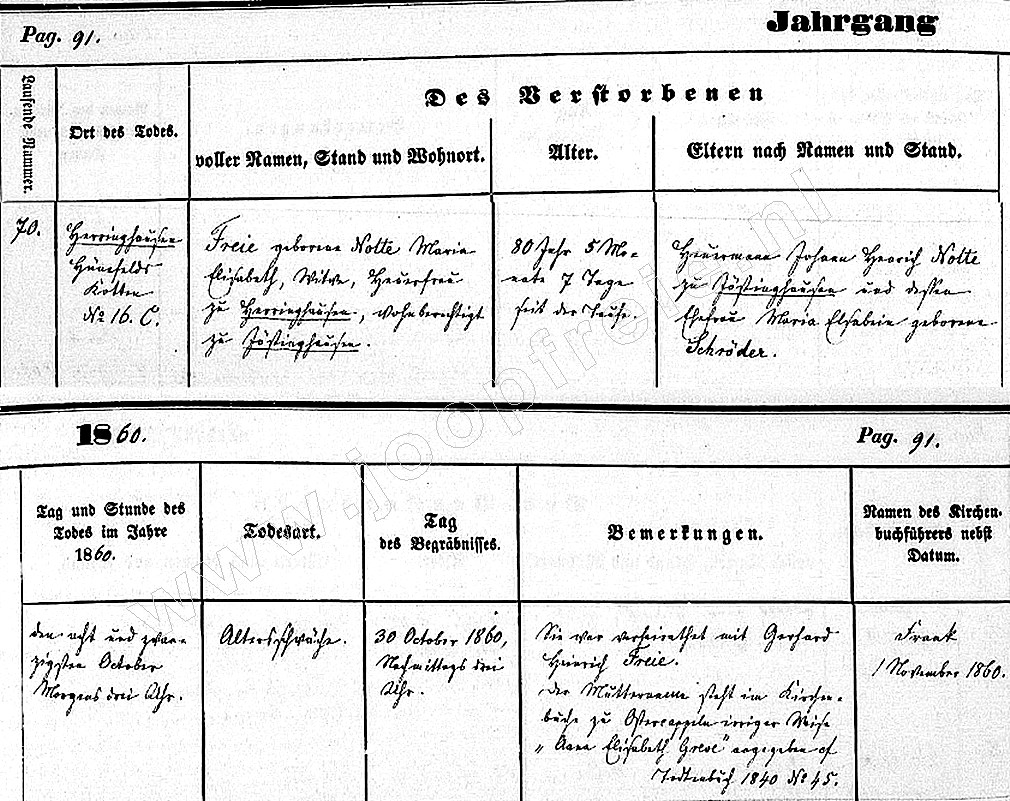 Pag. 91.
Jahrgang
Laufende Nummer.
Ort des Todes.
Des Verstorbenen
voller Namen, Stand und Wohnort.
Alter.
Eltern nach Namen und Stand.
70.
Herringhausen
Hünefelds
Kotten
No 16. C.
Freie geborene Nolte Maria
Elisabeth, Witwe, Heuerfrau
zu Herringhausen, wohnberechtigt
zu Jöstinghausen.
80 Jahr 5 Mo-
nate 7 Tage
seit der Taufe.
Heuermann Johann Henrich Nolte
zu Jöstinghausen und dessen
Ehefrau Maria Elsabein geborene
Schröder.
1860.
Pag. 91.
Tag und Stunde des
Todes im Jahre
1860.
Todesart.
Tag
des Begräbnisses.
Bemerkungen.
Namen des Kirchen-
buchführers nebst
Datum.
den acht und zwan-
zigsten October
Morgens drei Uhr.
Altersschwäche.
30 October 1860,
Nachmittags drei
Uhr.
Sie war verheirathet mit Gerhard
Heinrich Freie.
Der Muttername steht im Kirchen-
buche zu Ostercappeln irriger Weise
"Anna Elisabeth Grese" angegeben cf
Todtenbuch 1840 No 45.
Frank
1 November 1860.
www.joopfreie.nl